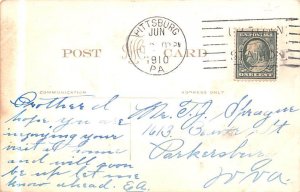 PITTSBURG
JUN
1910
PA
POST CARD
ONE CENT
COMMUNICATION
ADDRESS ONLY
Brother I
hope you are
injoying your
visit at home
and will soon
be up let me
know ahead. Ed.
Mr. T. J. Sprague
1613 St
Parkersburg
W Va